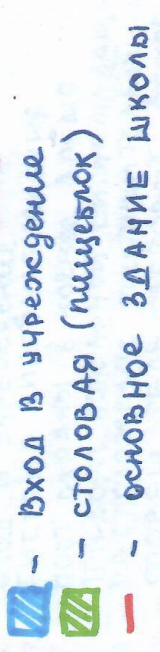 - ВХОД В УЧРЕЖДЕНИЕ
- СТОЛОВАЯ (ПИЩЕБЛОК)
- ОСНОВНОЕ ЗДАНИЕ ШКОЛЫ